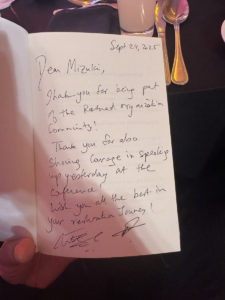 Sept 24, 2025
Dear Mizuki,
Thank you for being part
of the Rootned organization
Community!
Thank you for also
Showing Courage in speaking
up yesterday at the
Conference.
Wish you all the best in
your restoration Journey!